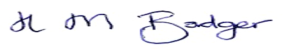 H M Badger